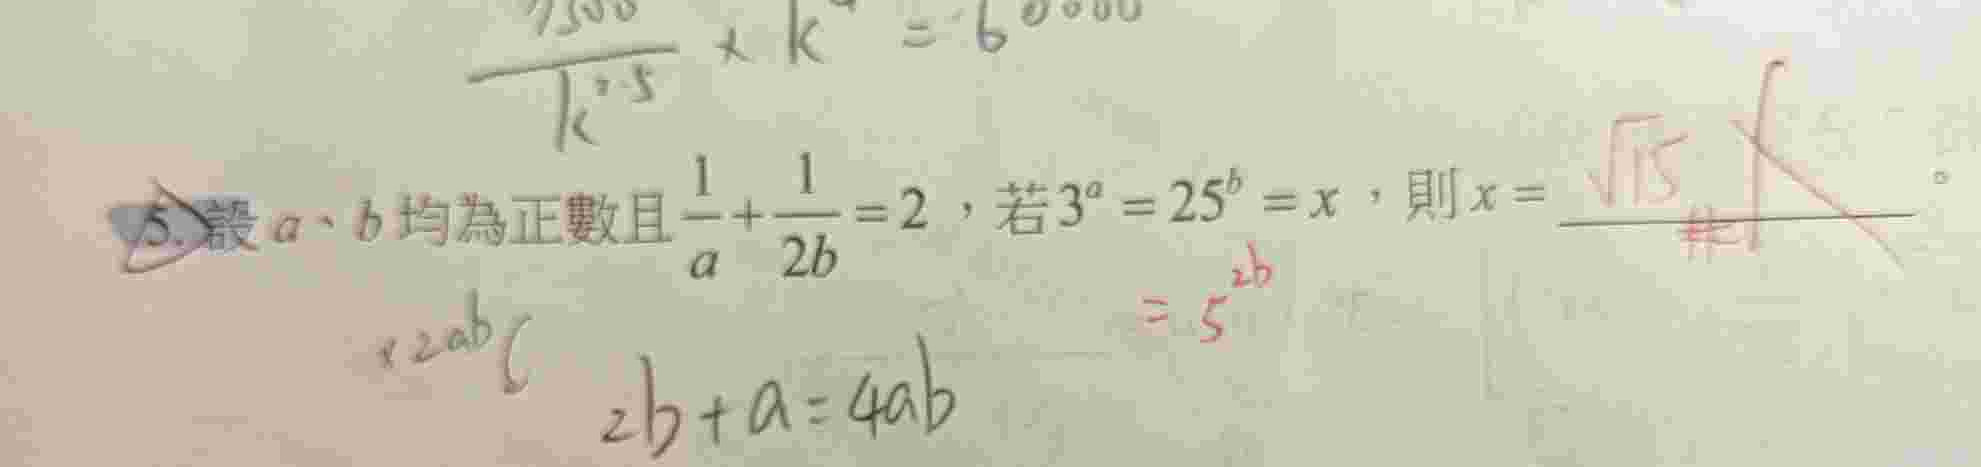 7500/k^2.5 × k^4 = 60000
5. 設 a、b 均為正數且 1/a + 1/2b = 2，若 3^a = 25^b = x，則 x = √15 #。
= 5^2b
×2ab (
2b + a = 4ab